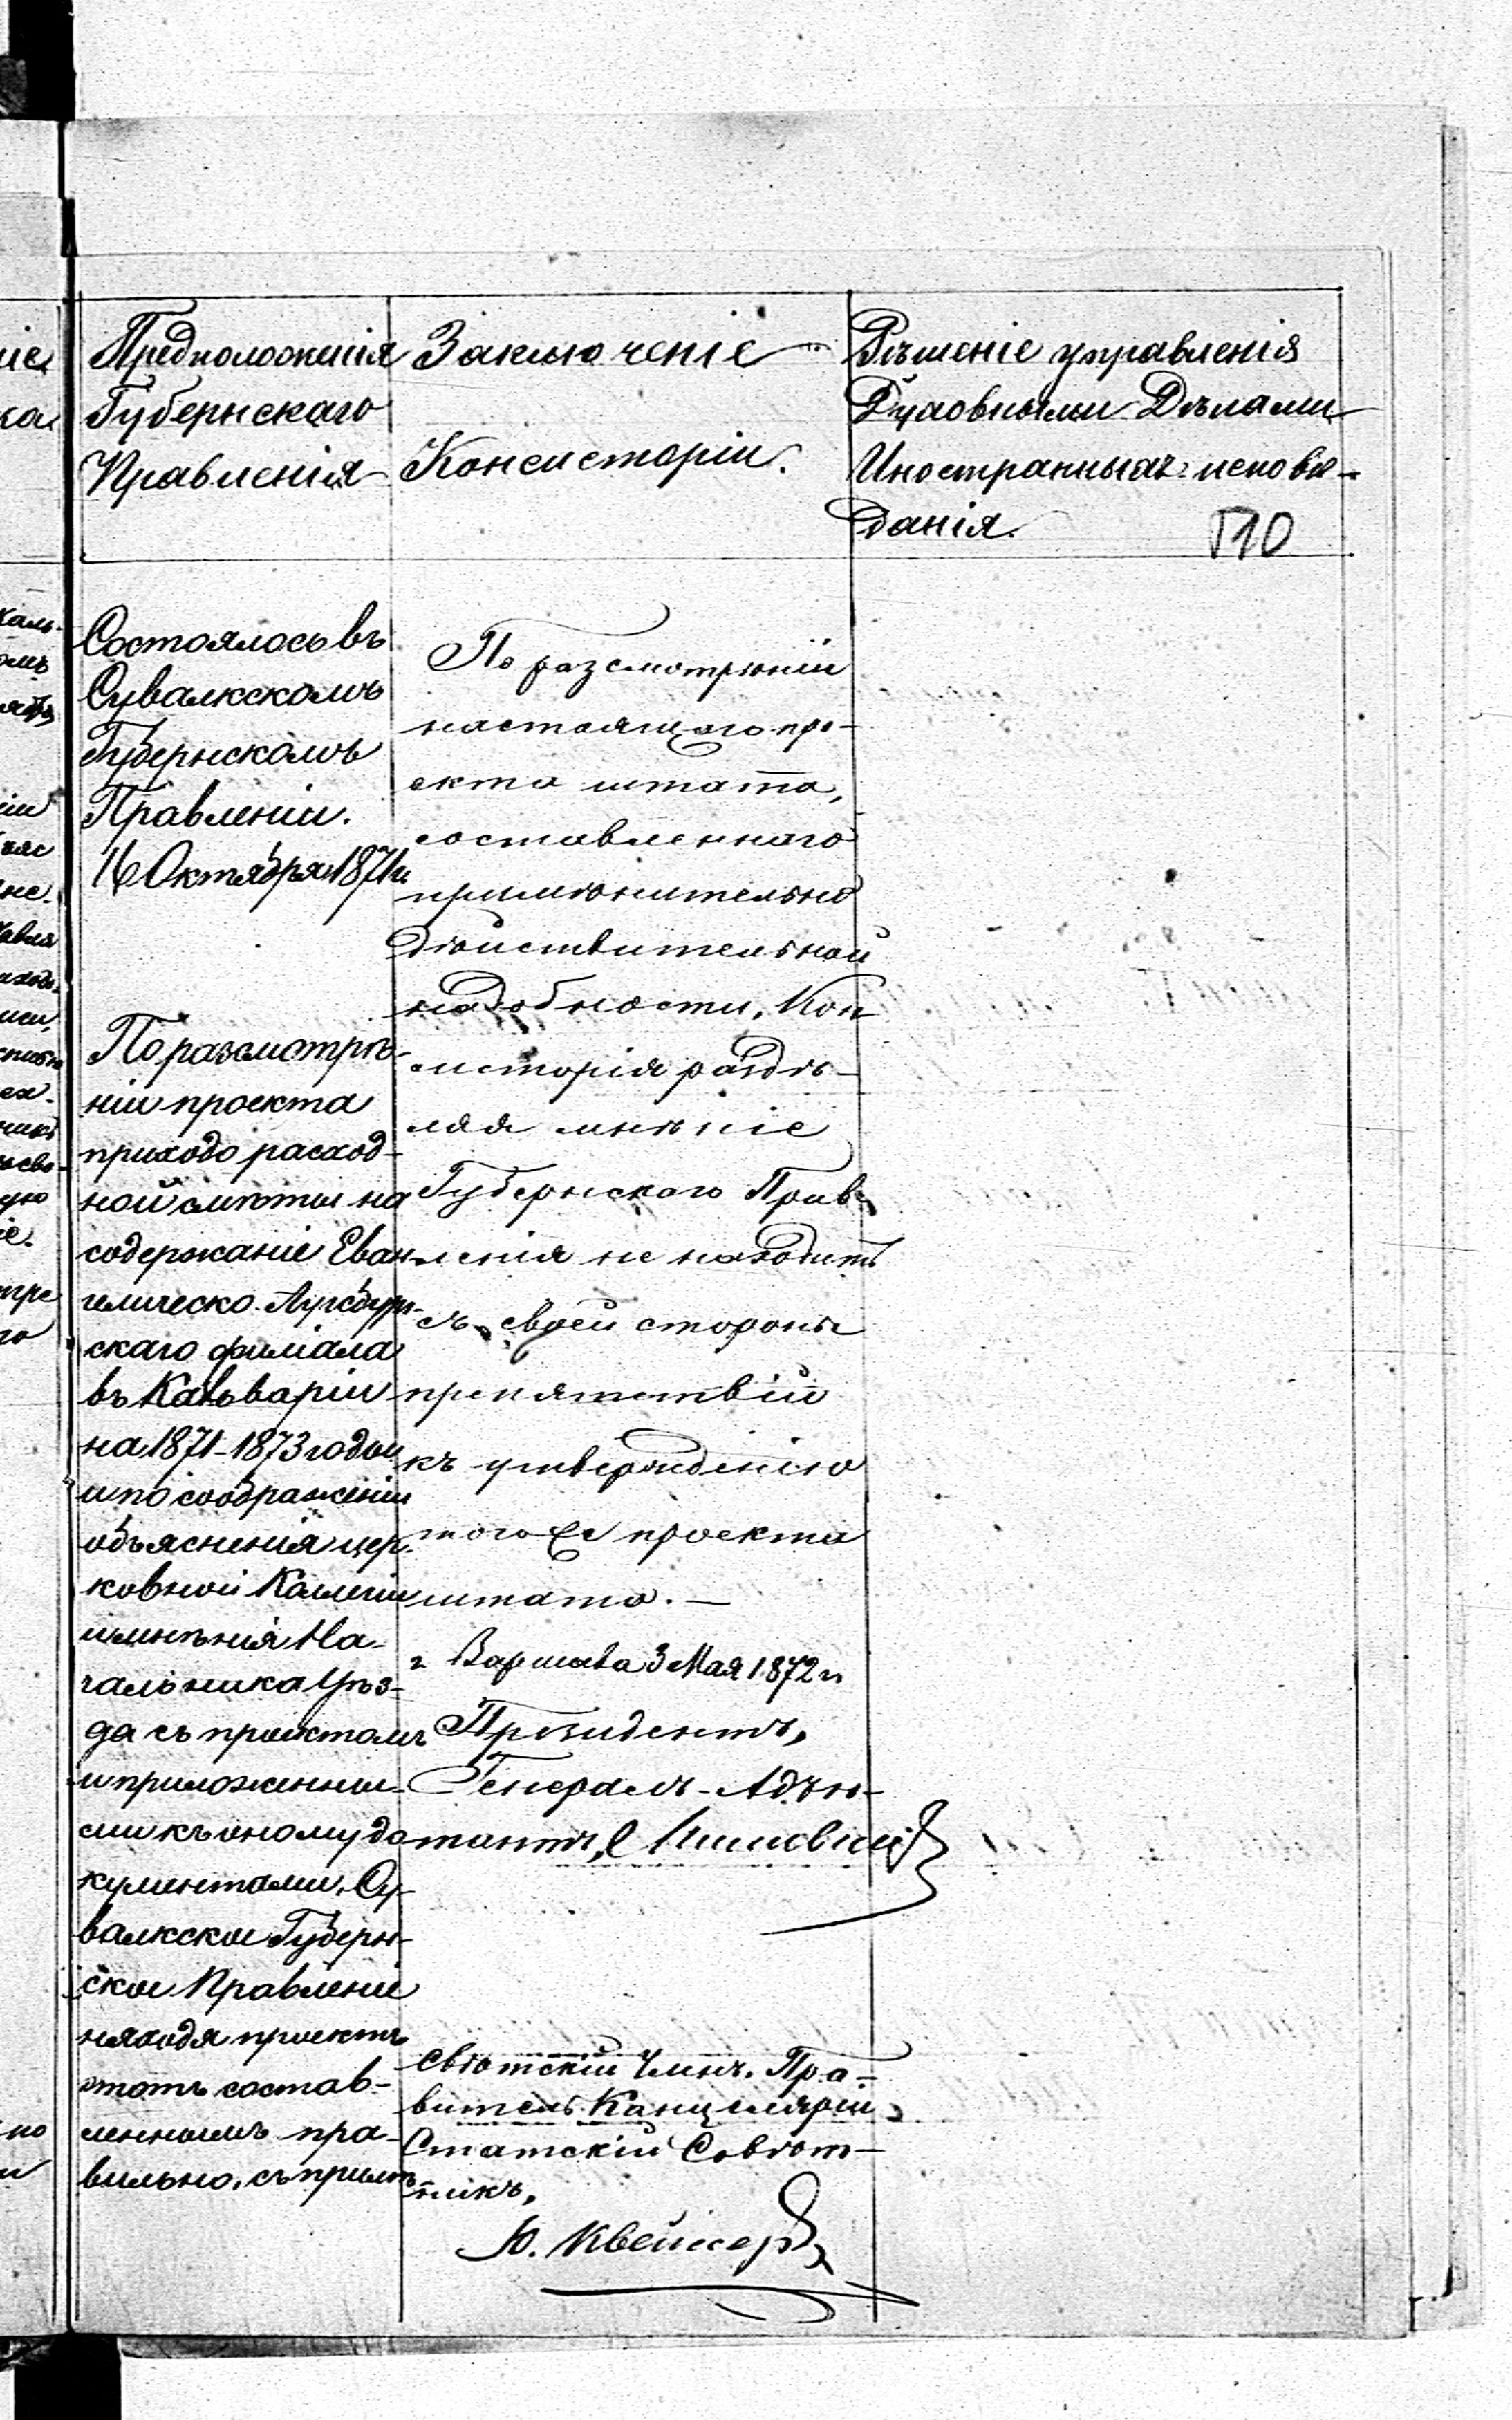 Предположенія
Губернскаго
Правленія
Заключеніе
Консисторіи.
Рѣшеніе управленія
Духовными Дѣлами
Иностранныхъ исповѣ-
данія.
110
Состоялось въ
Сувалкскомъ
Губернскомъ
Правленіи.
16 Октября 1871 г.
По разсмотрѣ-
ніи проекта
приходо расход-
ной смѣты на
содержаніе Еван-
гелическо-Аугсбург-
скаго филіала
въ Кальваріи
на 1871-1873 годы
и по соображеніи
объясненія цер-
ковной Коллегіи
и мнѣнія На-
чальника Уѣз-
да съ проектомъ
и приложенны-
ми къ оному до
кументами, Су-
валкское Губерн-
ское Правленіе
находя проектъ
этотъ состав-
леннымъ пра-
вильно, съ примѣ
По разсмотрѣніи
настоящаго про-
екта штата,
составленнаго
примѣнительно
дѣйствительной
надобности, Кон
систорія раздѣ-
ляя мнѣніе
Губернскаго Прав-
ленія не находитъ
съ своей стороны
препятствій
къ утвержденію
того проекта
штата. —
г Варшава 3 Мая 1872 г.
Президентъ,
Генералъ-Адъю-
тантъ,
Свѣтскій Членъ, Пра-
витель Канцеляріи,
Статскій Совѣт-
никъ,
Ю.